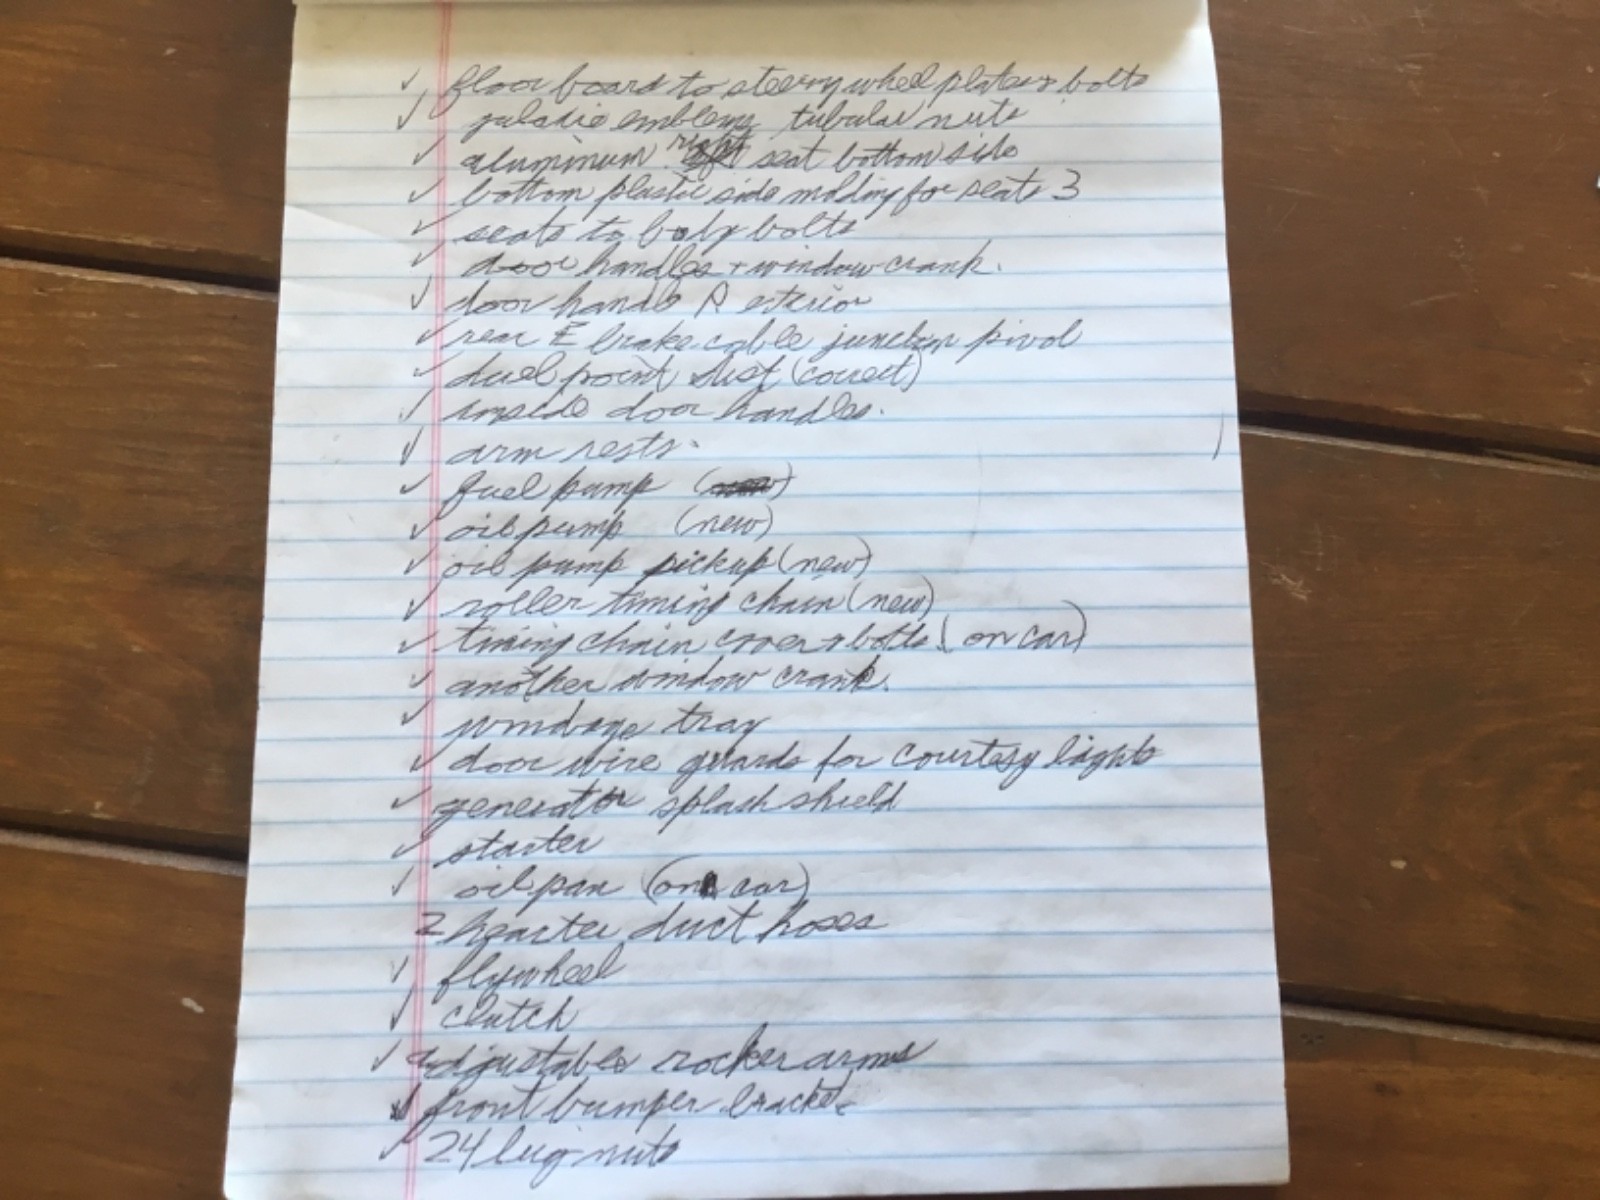 ✓ floor board to steering wheel plate & bolts
✓ galaxie emblems tubular nuts
✓ aluminum right seat bottom side
✓ bottom plastic side molding for seats 3
✓ seats to body bolts
✓ door handles + window crank.
✓ door handle R exterior
✓ rear E brake cable junction pivot
✓ duel point dist (correct)
✓ inside door handles.
✓ arm rests.
✓ fuel pump
✓ oil pump (new)
✓ oil pump pickup (new)
✓ roller timing chain (new)
✓ timing chain cover & bolts (on car)
✓ another window crank.
✓ windage tray
✓ door wire guards for courtesy lights
✓ generator splash shield
✓ starter
✓ oil pan (on car)
2 hearter duct hoses
✓ flywheel
✓ clutch
✓ adjustable rocker arms
✓ front bumper brackets
✓ 24 lug nuts